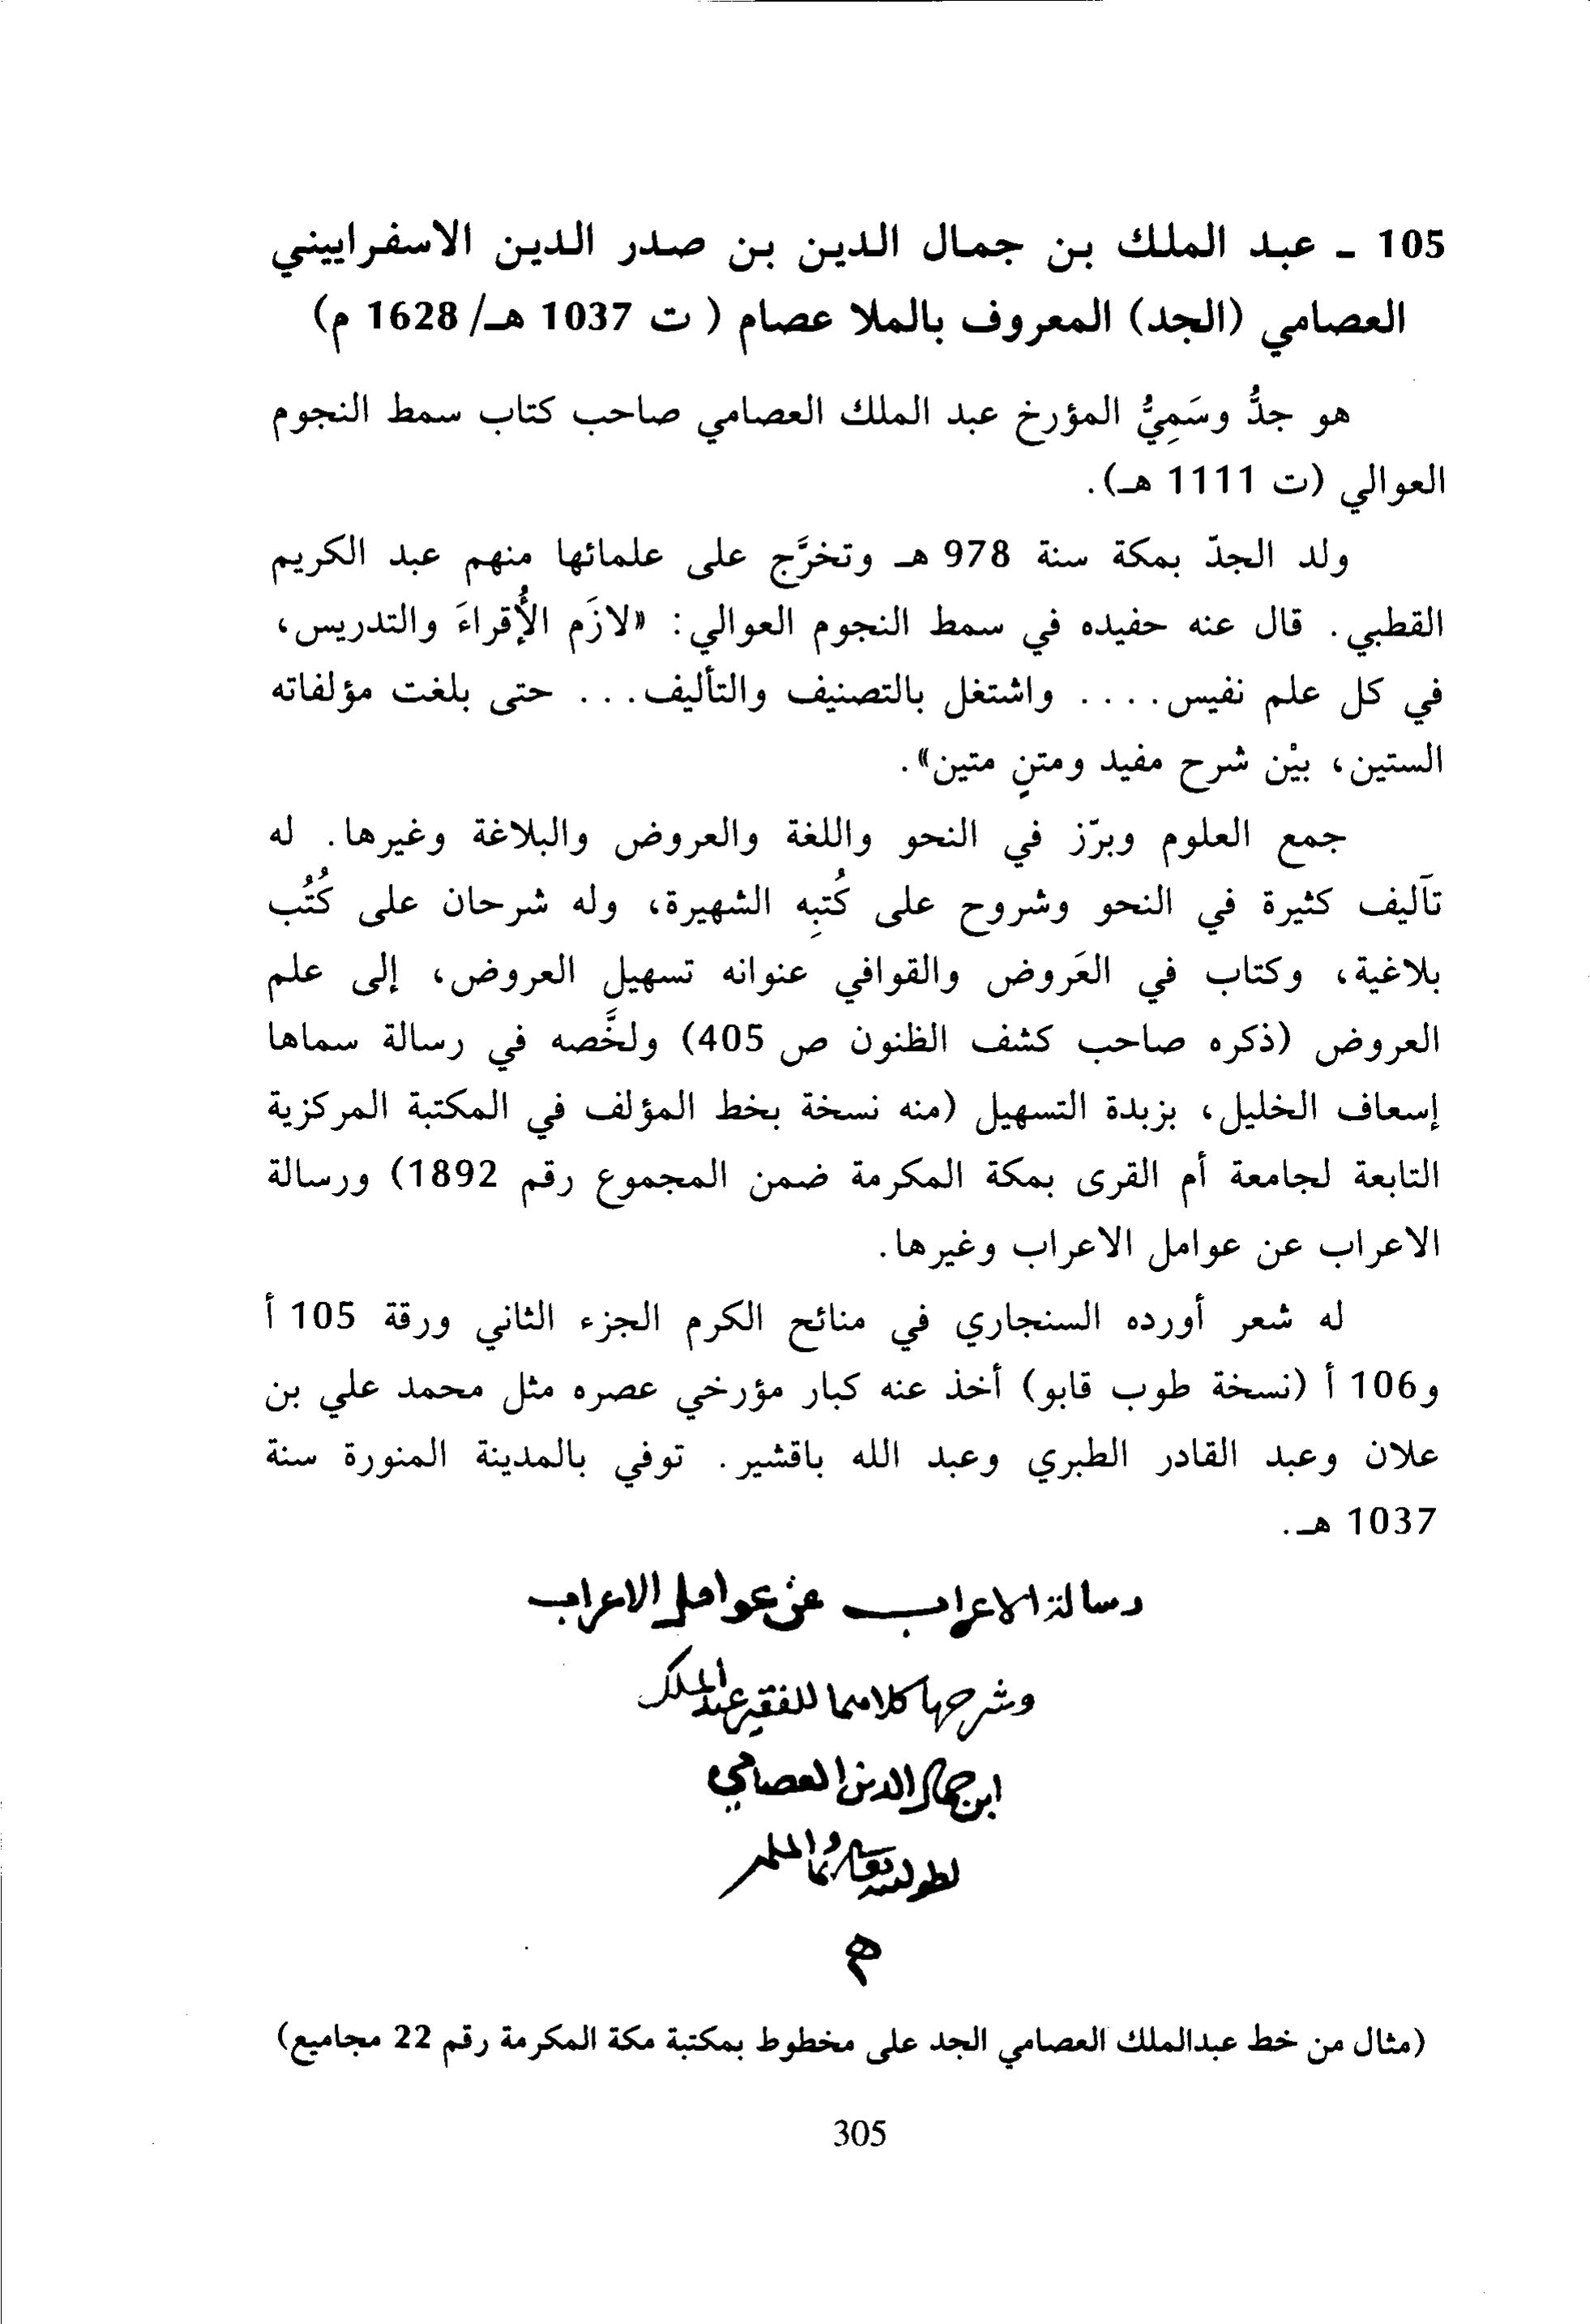 105 ـ عبد الملك بن جمال الدين بن صدر الدين الاسفراييني
العصامي (الجد) المعروف بالملا عصام ( ت 1037 هـ/ 1628 م)
هو جدُّ وسَمِيُّ المؤرخ عبد الملك العصامي صاحب كتاب سمط النجوم
العوالي (ت 1111 هـ).
ولد الجدّ بمكة سنة 978 هـ وتخرَّج على علمائها منهم عبد الكريم
القطبي. قال عنه حفيده في سمط النجوم العوالي: «لازَم الأُقراءَ والتدريس،
في كل علم نفيس.... واشتغل بالتصنيف والتأليف... حتى بلغت مؤلفاته
الستين، بيْن شرح مفيد ومتنٍ متين».
جمع العلوم وبرّز في النحو واللغة والعروض والبلاغة وغيرها. له
تآليف كثيرة في النحو وشروح على كُتبِه الشهيرة، وله شرحان على كُتُب
بلاغية، وكتاب في العَروض والقوافي عنوانه تسهيل العروض، إلى علم
العروض (ذكره صاحب كشف الظنون ص 405) ولخَّصه في رسالة سماها
إسعاف الخليل، بزبدة التسهيل (منه نسخة بخط المؤلف في المكتبة المركزية
التابعة لجامعة أم القرى بمكة المكرمة ضمن المجموع رقم 1892) ورسالة
الاعراب عن عوامل الاعراب وغيرها.
له شعر أورده السنجاري في منائح الكرم الجزء الثاني ورقة 105 أ
و106 أ (نسخة طوب قابو) أخذ عنه كبار مؤرخي عصره مثل محمد علي بن
علان وعبد القادر الطبري وعبد الله باقشير. توفي بالمدينة المنورة سنة
1037 هـ.
رسالة الاعراب عن عوامل الاعراب
وشرحها كلاهما للفقير عبد الملك
ابن جمال الدين العصامي
(مثال من خط عبدالملك العصامي الجد على مخطوط بمكتبة مكة المكرمة رقم 22 مجاميع)
305